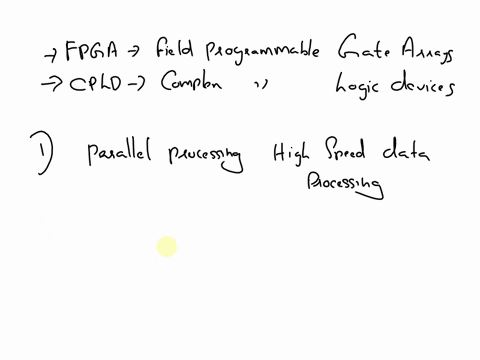 → FPGA → Field programmable Gate Arrays
→ CPLD → Complex ,, Logic devices
1) parallel processing High Speed data
Processing